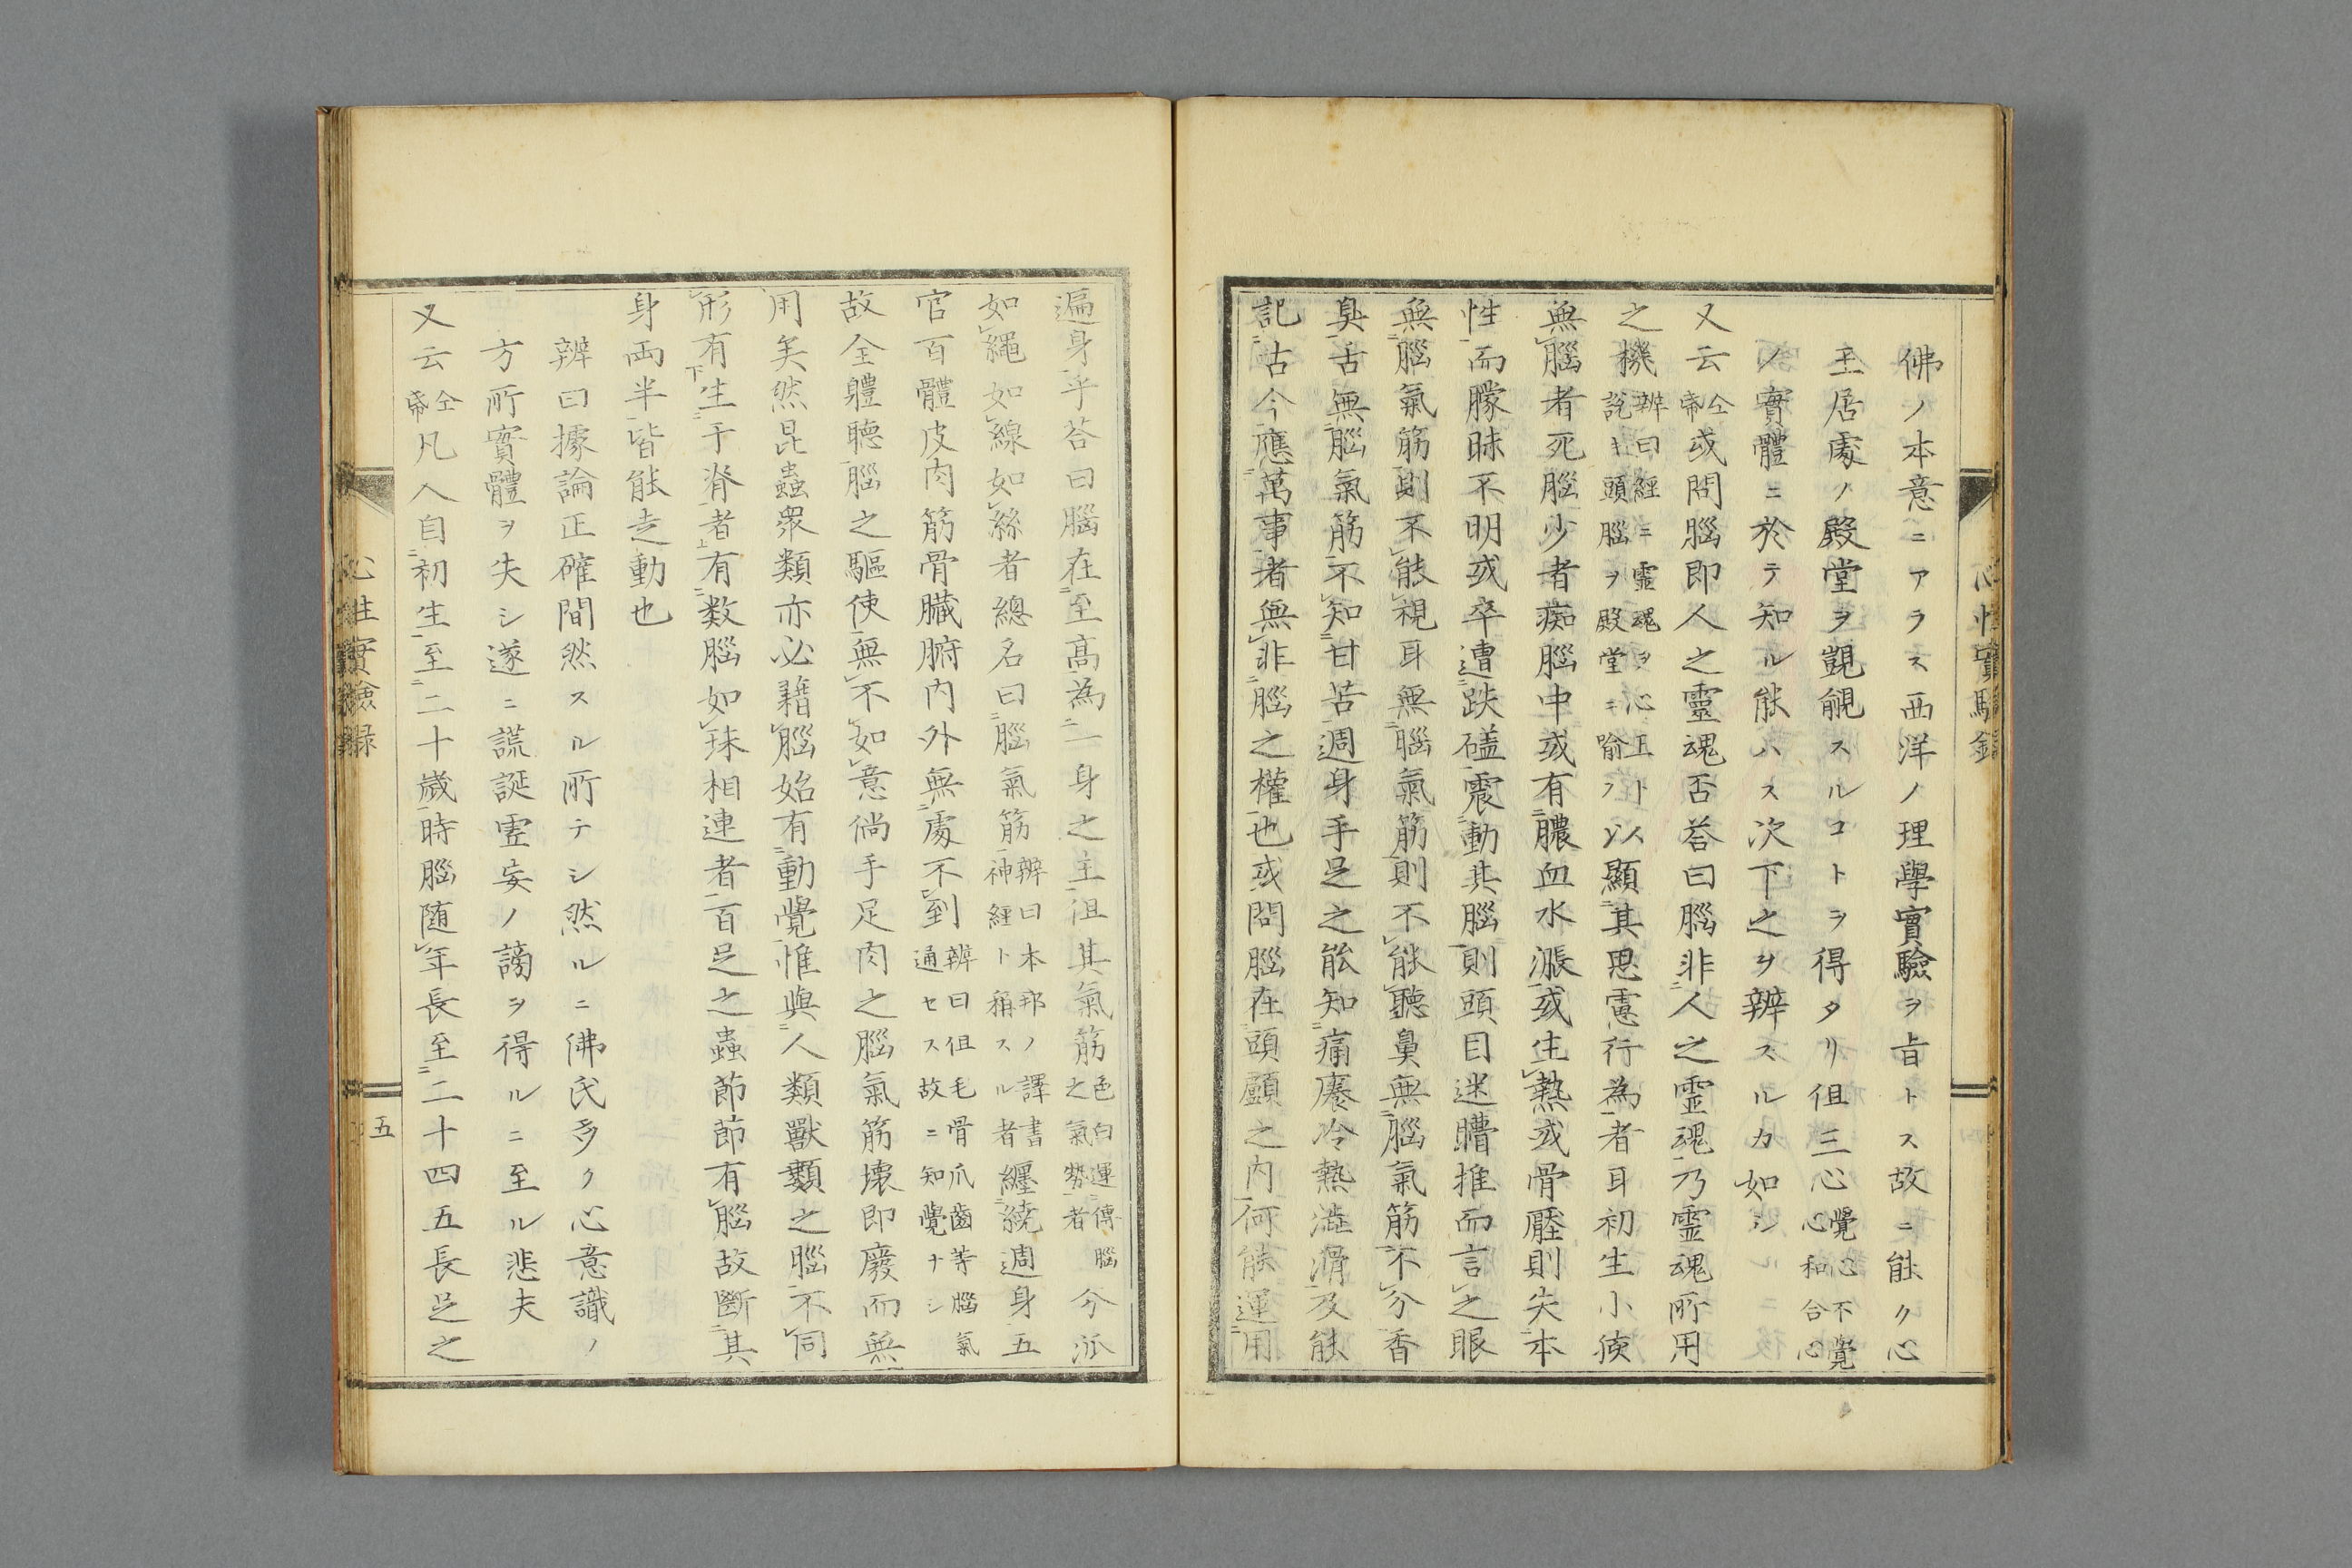 心性實驗録
佛ノ本意ニアラス西洋ノ理學實驗ヲ旨トス故ニ能ク心
主居處ノ殿堂ヲ覬覦スルコトヲ得タリ但三心覺心不覺心和合心
ノ實體ニ於テ知ル能ハス次下之ヲ辨スルカ如シ
又云仝帝或問腦即人之靈魂否荅曰腦非人之靈魂乃靈魂所用
之機辨曰經ニ靈魂ヲ心王ト説キ頭腦ヲ殿堂ニ喻フ以顯其思慮行為者耳初生小孩
無腦者死腦少者痴腦中或有膿血水漲或生熱或骨壓則失本
性而朦昧不明或卒遭跌磕震動其腦則頭目迷瞶推而言之眼
無腦氣筋則不能視耳無腦氣筋則不能聽鼻無腦氣筋不分香
臭舌無腦氣筋不知甘苦週身手足之能知痛癢冷熱澁滑及能
記古今應萬事者無非腦之權也或問腦在頭顱之内何能運用
遍身乎荅曰腦在至高為一身之主但其氣筋色白運傳腦之氣勢者分派
如繩如線如絲者總名曰腦氣筋辨曰本邦ノ譯書神經ト稱スル者纏繞週身五
官百體皮肉筋骨臓腑内外無處不到辨曰但毛骨爪齒等腦氣通セス故ニ知覺ナシ
故全體聽腦之驅使無不如意倘手足肉之腦氣筋壞即廢而無
用矣然昆蟲衆類亦必藉腦始有動覺惟與人類獸類之腦不同
形有生于脊者有数腦如珠相連者百足之蟲節節有腦故斷其
身両半皆能走動也
辨曰據論正確間然スル所テシ然ルニ佛氏多ク心意識ノ
方所實體ヲ失シ遂ニ謊誕虚妄ノ謗ヲ得ルニ至ル悲夫
又云仝帝凡人自初生至二十歳時腦随年長至二十四五長足之
心性實驗録
五